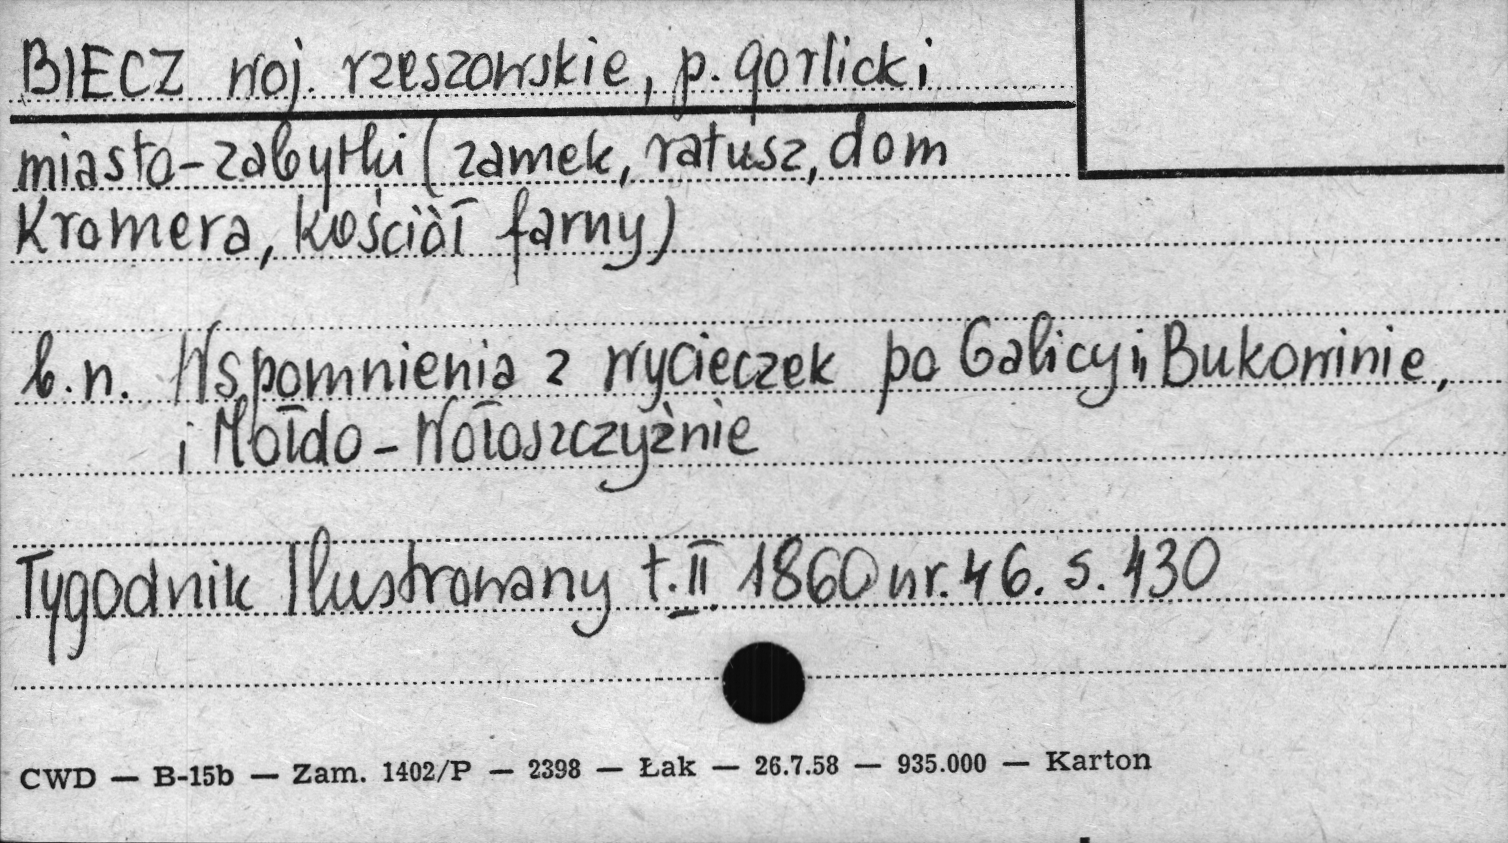 BIECZ woj. rzeszowskie, p. gorlicki
miasto-zabytki (zamek, ratusz, dom
Kromera, kościół farny)
b.n. Wspomnienia z wycieczek po Galicyi, Bukowinie,
i Mołdo-Wołoszczyźnie
Tygodnik Ilustrowany t.II 1860 nr. 46. s. 430
CWD — B-15b — Zam. 1402/P — 2398 — Łak — 26.7.58 — 935.000 — Karton